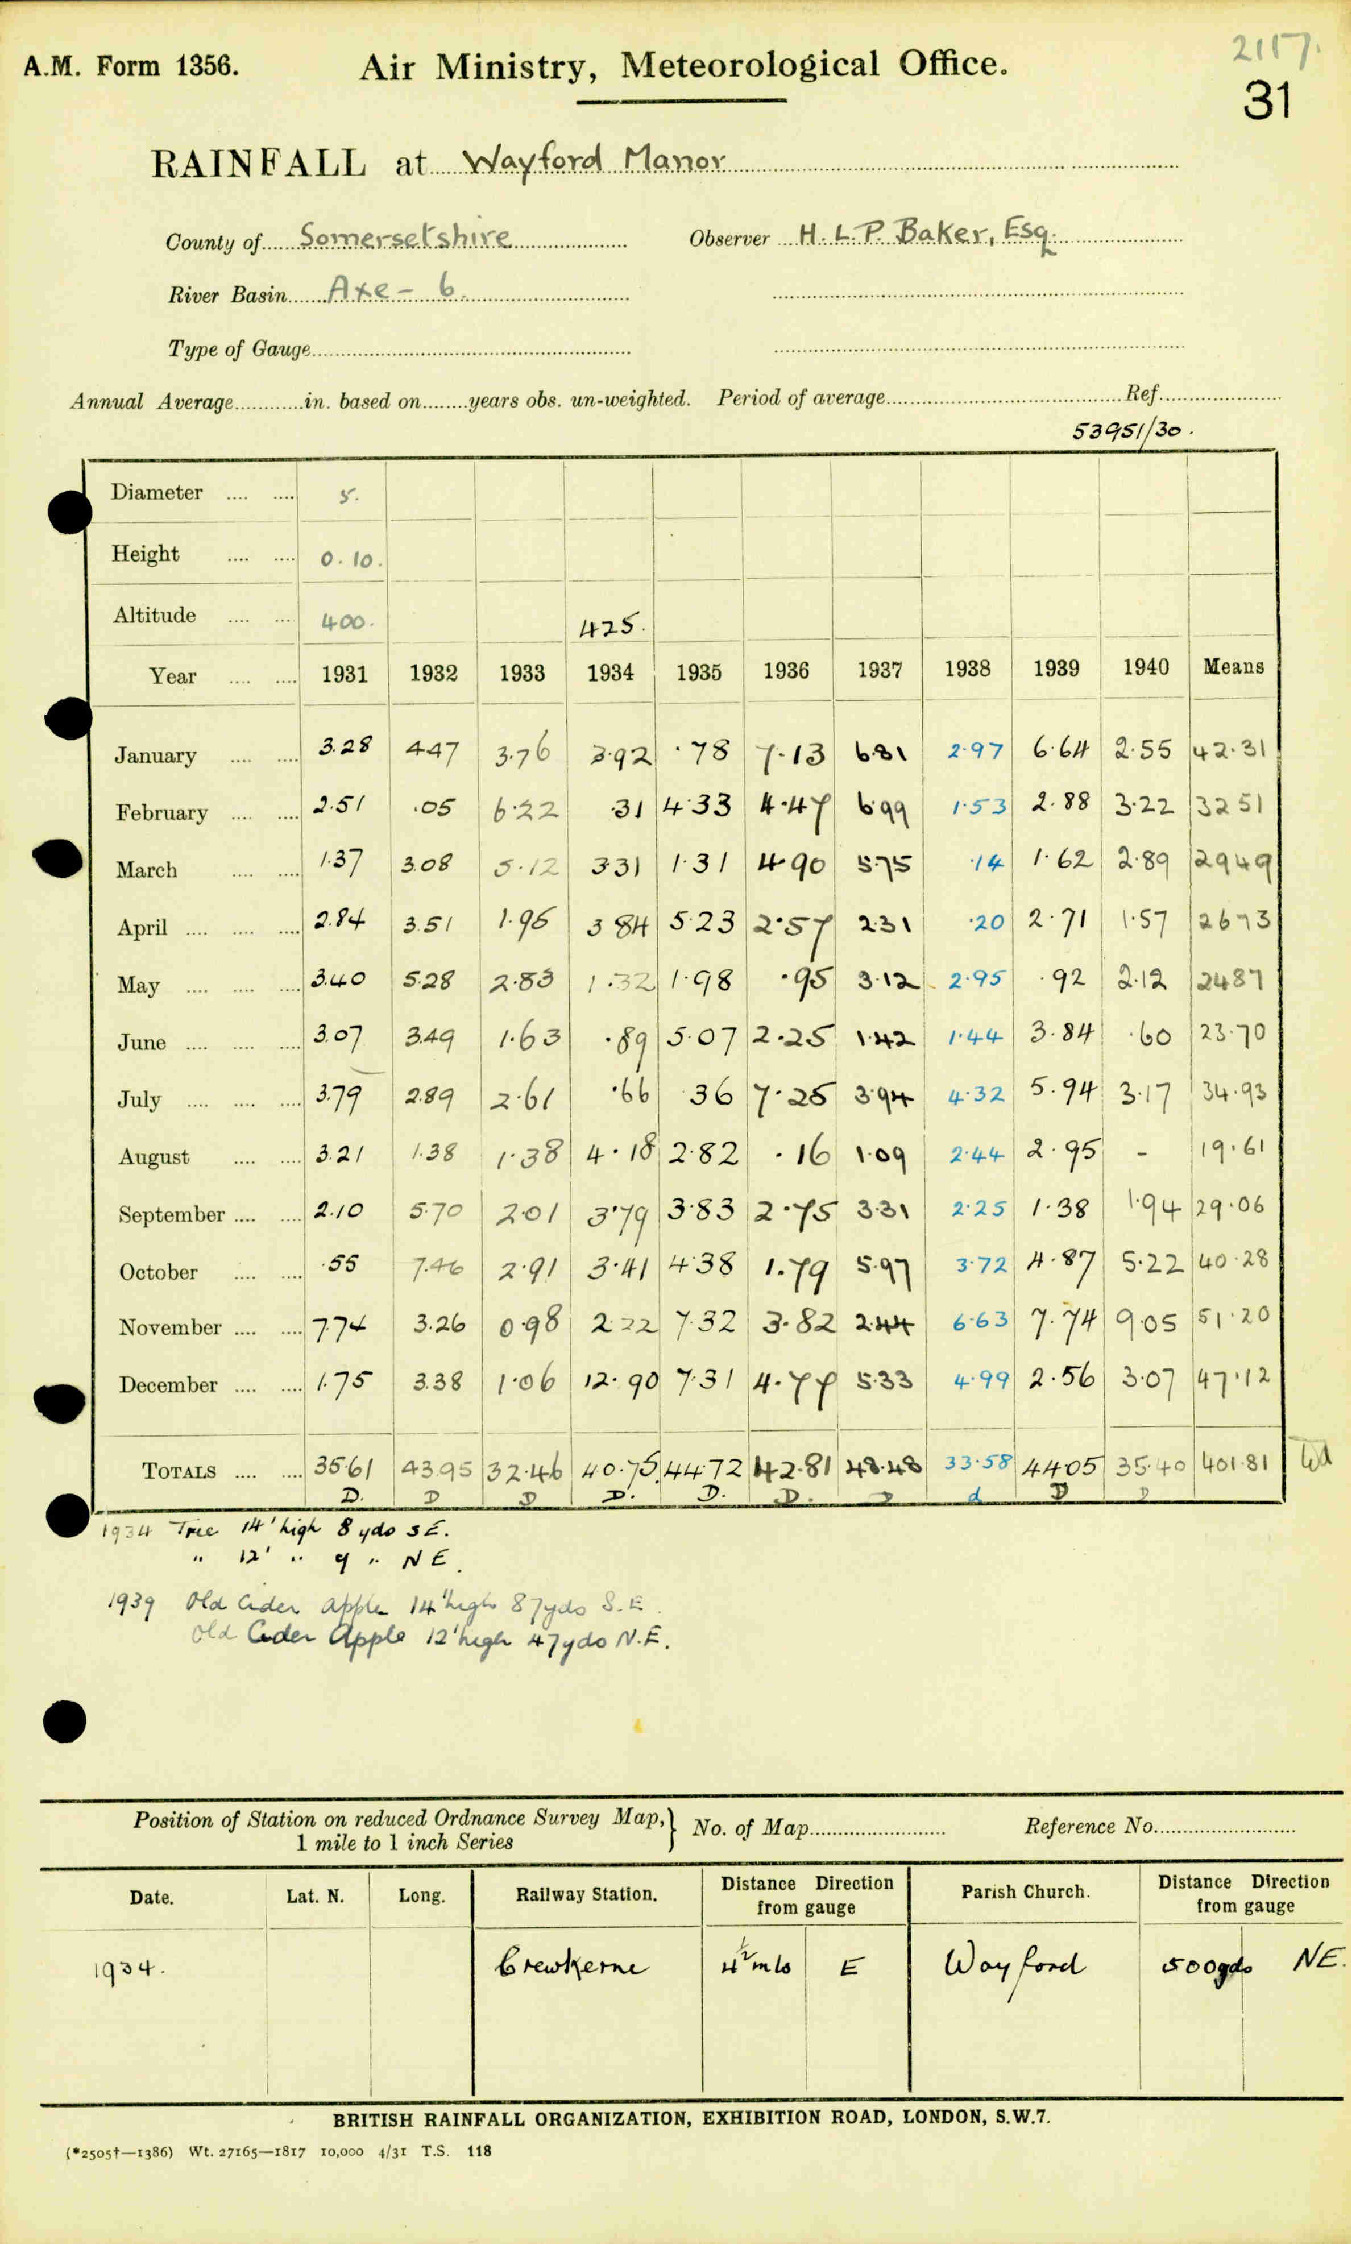 2117.
A.M. Form 1356. Air Ministry, Meteorological Office.
31
RAINFALL at Wayford Manor
County of Somersetshire Observer H. L. P. Baker, Esq.
River Basin Axe - 6.
Type of Gauge
Annual Average in. based on years obs. un-weighted. Period of average Ref.
53951/30.
Diameter 5.
Height 0.10.
Altitude 400. 425.
Year 1931 1932 1933 1934 1935 1936 1937 1938 1939 1940 Means
January 3.28 4.47 3.76 3.92 .78 7.13 6.81 2.97 6.64 2.55 42.31
February 2.51 .05 6.22 .31 4.33 4.47 6.99 1.53 2.88 3.22 32 51
March 1.37 3.08 5.12 3 31 1.31 4.90 5.75 .14 1.62 2.89 29 49
April 2.84 3.51 1.95 3 84 5 23 2.57 2.31 .20 2.71 1.57 26 73
May 3.40 5.28 2.83 1.32 1.98 .95 3.12 2.95 .92 2.12 24 87
June 3.07 3.49 1.63 .89 5.07 2.25 1.42 1.44 3.84 .60 23.70
July 3.79 2.89 2.61 .66 36 7.25 3.94 4.32 5.94 3.17 34.93
August 3.21 1.38 1.38 4.18 2.82 .16 1.09 2.44 2.95 - 19.61
September 2.10 5.70 2.01 3.79 3.83 2.75 3.31 2.25 1.38 1.94 29.06
October .55 7.46 2.91 3.41 4.38 1.79 5.97 3.72 4.87 5.22 40.28
November 7.74 3.26 0.98 2.22 7.32 3.82 2.44 6.63 7.74 9.05 51.20
December 1.75 3.38 1.06 12.90 7.31 4.77 5.33 4.99 2.56 3.07 47.12
TOTALS 35.61 43.95 32.46 40.75 44.72 42.81 48.48 33.58 44.05 35.40 401.81
D. D D D. D. D. D d D D
1934 Tree 14' high 8 yds S E.
" 12' " 9 " N E.
1939 Old Cider apple 14' high 87yds S.E.
Old Cider Apple 12' high 47yds N.E.
Position of Station on reduced Ordnance Survey Map, } No. of Map Reference No.
1 mile to 1 inch Series
Date. Lat. N. Long. Railway Station. Distance Direction from gauge Parish Church. Distance Direction from gauge
1934. Crewkerne 4 1/2 mls E Wayford 500yds NE.
BRITISH RAINFALL ORGANIZATION, EXHIBITION ROAD, LONDON, S.W.7.
(*2505†—1386) Wt. 27165—1817 10,000 4/31 T.S. 118